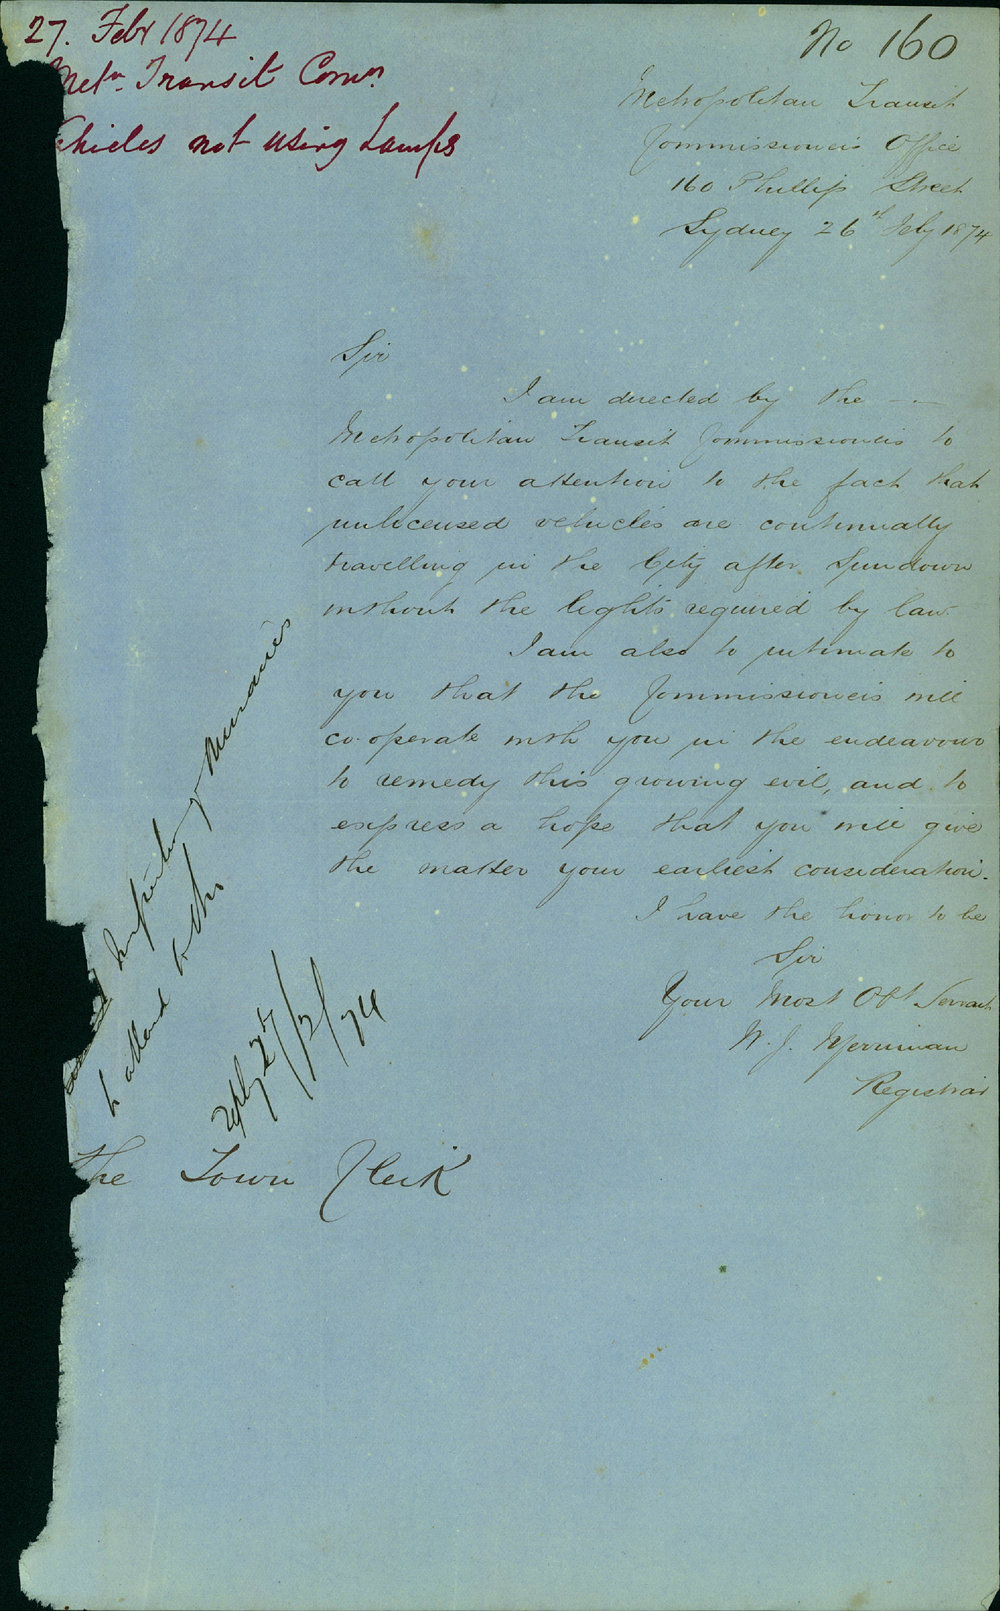 27. Febr 1874
Metn. Transit Comn.
ehicles not using Lamps
No 160
Metropolitan Transit
Commissioners Office
160 Phillip Street
Sydney 26th Feby 1874
Sir
I am directed by the
Metropolitan Transit Commissioners to
call your attention to the fact that
unlicensed vehicles are continually
travelling in the City after Sundown
without the lights required by law
I am also to intimate to
you that the Commissioners will
co-operate with you in the endeavour
to remedy this growing evil, and to
express a hope that you will give
the matter your earliest consideration.
I have the honor to be
Sir
Your Most Obt Servant
W. J. Merriman
Registrar
Inspector of Nuisances
to attend to this
reply 27/2/74
The Town Clerk